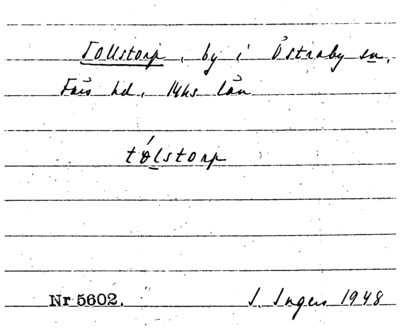 Tollstorp, by i Östraby sn,
Färs hd, Mhs län
tólstorp
Nr 5602. I. Ingers 1948